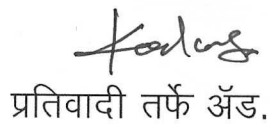 प्रतिवादी तर्फे ॲड.